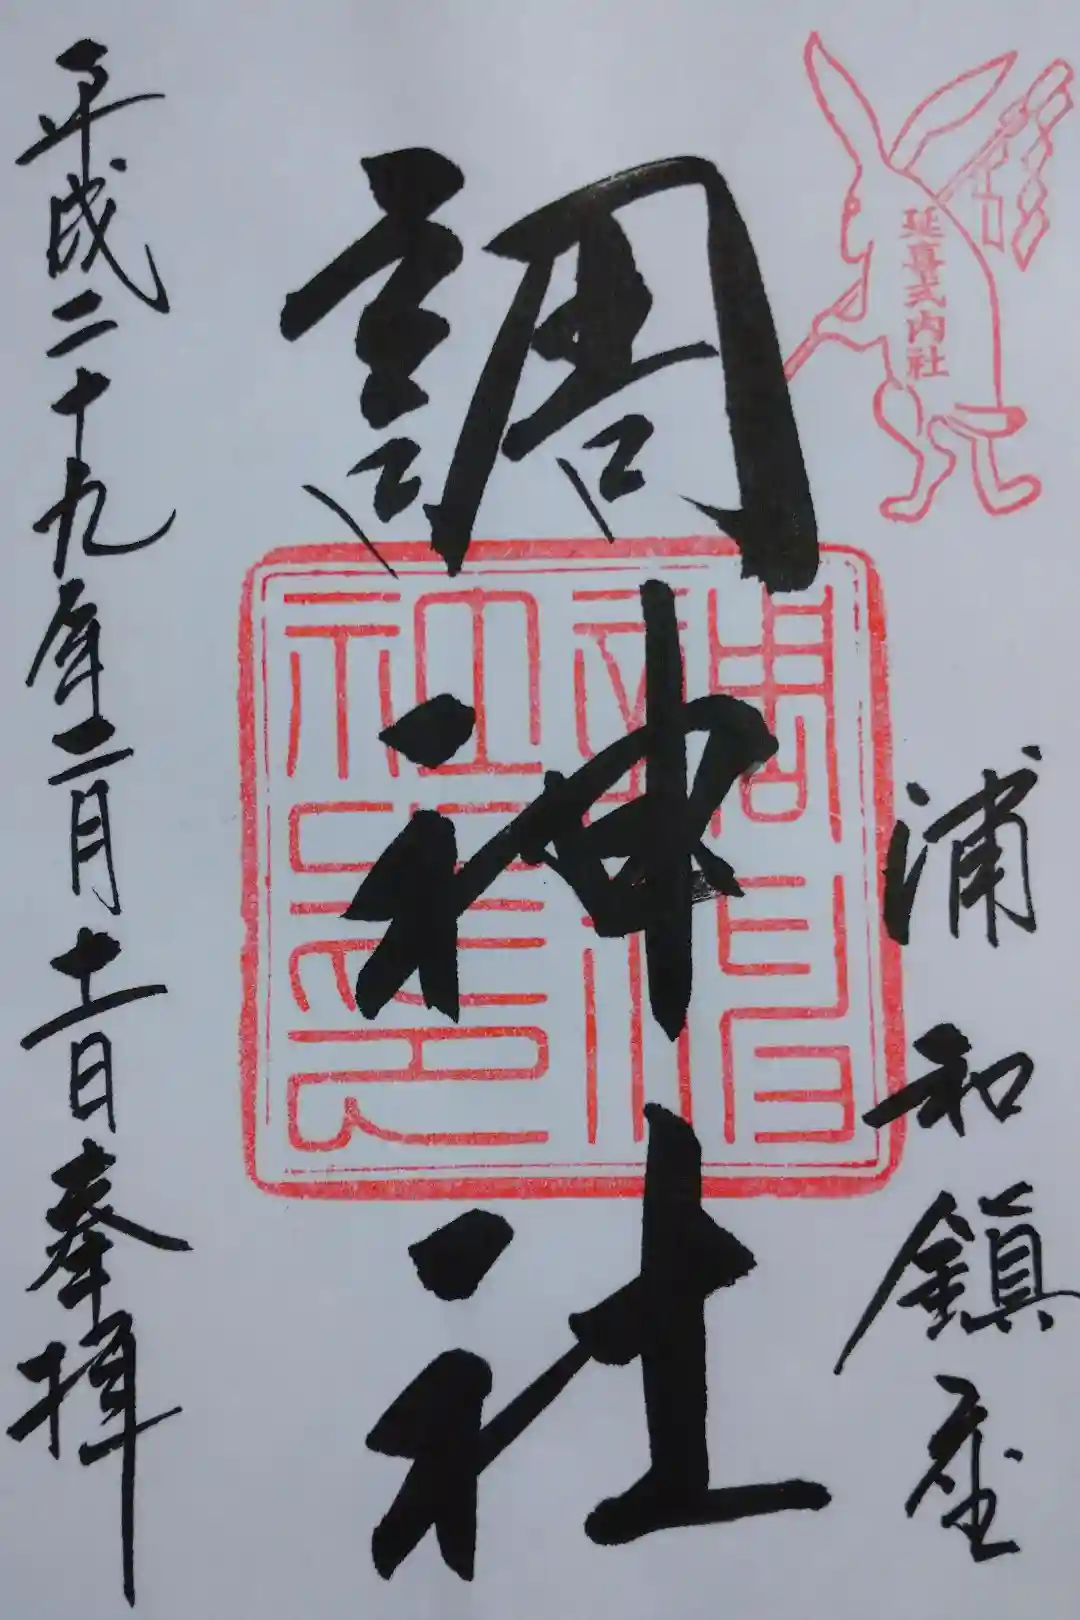 延喜式内社
浦和鎮座
調神社
平成二十九年二月十一日奉拝